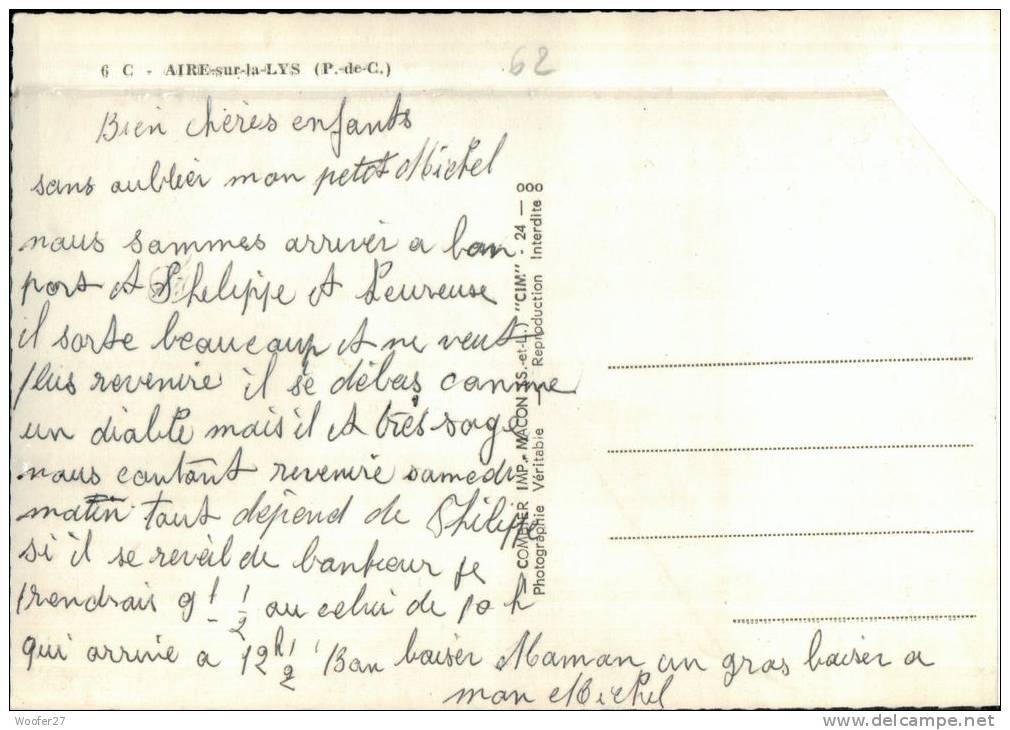 6 C - AIRE-sur-la-LYS (P.-de-C.)
62
Bien chères enfants
sans oublier mon petit Michel
nous sommes arriver a bon
port et Philippe et heureuse
il sorte beaucoup et ne veut
plus revenire il se débas comme
un diable mais il et très sage
nous contont revenire samedi
matin tout dépend de Philippe
si il se reveil de bonheur je
prendrais 9h 1/2 ou celui de 10 h
qui arrive a 12h 1/2 Bon baiser Maman un gros baiser a
mon Michel
COMBIER IMP. MACON (S.-et-L.) "CIM" - 24 — 000
Photographie Véritable Reproduction Interdite
Woofer27
www.delcampe.net